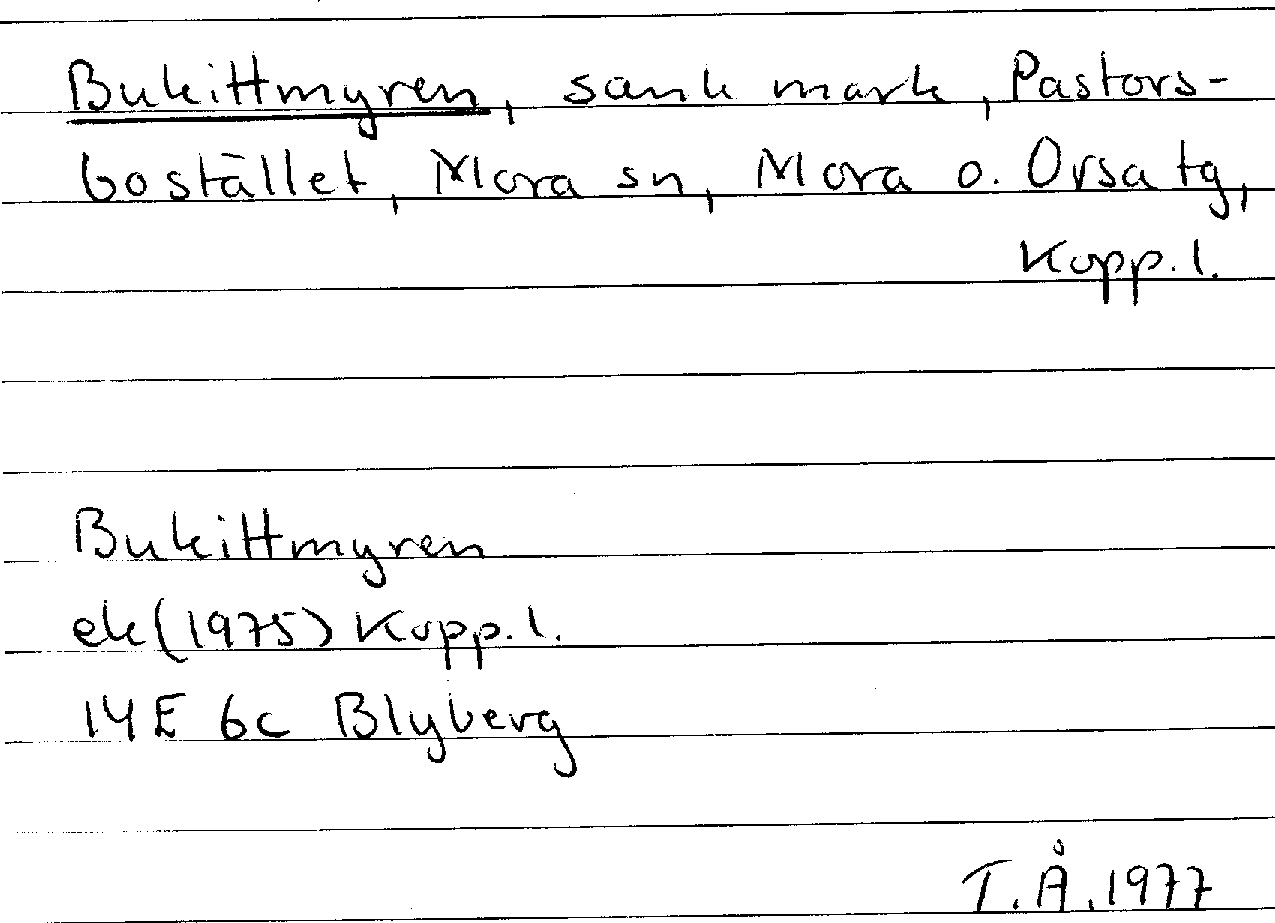 Bukittmyren, sank mark, Pastors-
bostället, Mora sn, Mora o. Orsa tg,
Kopp. l.
Bukittmyren
ek (1975) Kopp. l.
14E 6c Blyberg
T. Å. 1977